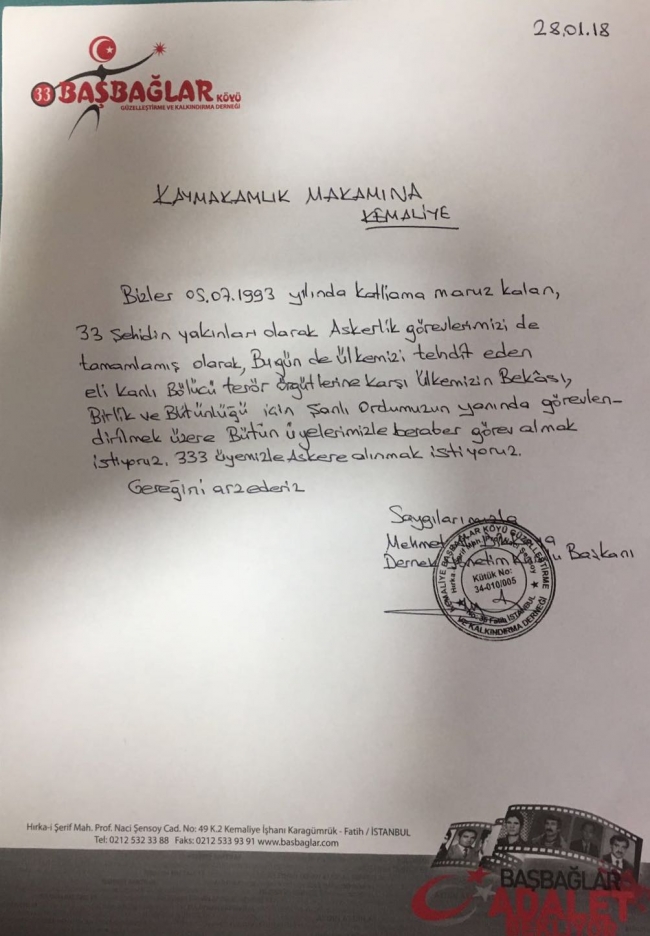 28.01.18
33 BAŞBAĞLAR KÖYÜ
GÜZELLEŞTİRME VE KALKINDIRMA DERNEĞİ
KAYMAKAMLIK MAKAMINA
KEMALİYE
Bizler 05.07.1993 yılında katliama maruz kalan,
33 şehidin yakınları olarak Askerlik görevlerimizi de
tamamlamış olarak, Bugün de ülkemizi tehdit eden
eli kanlı Bölücü terör örgütlerine karşı ülkemizin Bekâsı,
Birlik ve Bütünlüğü için şanlı Ordumuzun yanında görevlen-
dirilmek üzere Bütün üyelerimizle beraber görev almak
istiyoruz. 333 üyemizle Askere alınmak istiyoruz.
Gereğini arzederiz
Saygılarımızla
Mehmet
Dernek Yönetim Kurulu Başkanı
KEMALİYE BAŞBAĞLAR KÖYÜ GÜZELLEŞTİRME
VE KALKINDIRMA DERNEĞİ
Kütük No:
34-010/005
Fatih İSTANBUL
Hırka-i Şerif Mah. Prof. Naci Şensoy Cad. No: 49 K.2 Kemaliye İşhanı Karagümrük - Fatih / İSTANBUL
Tel: 0212 532 33 88 Faks: 0212 533 93 91 www.basbaglar.com
BAŞBAĞLAR
ADALET